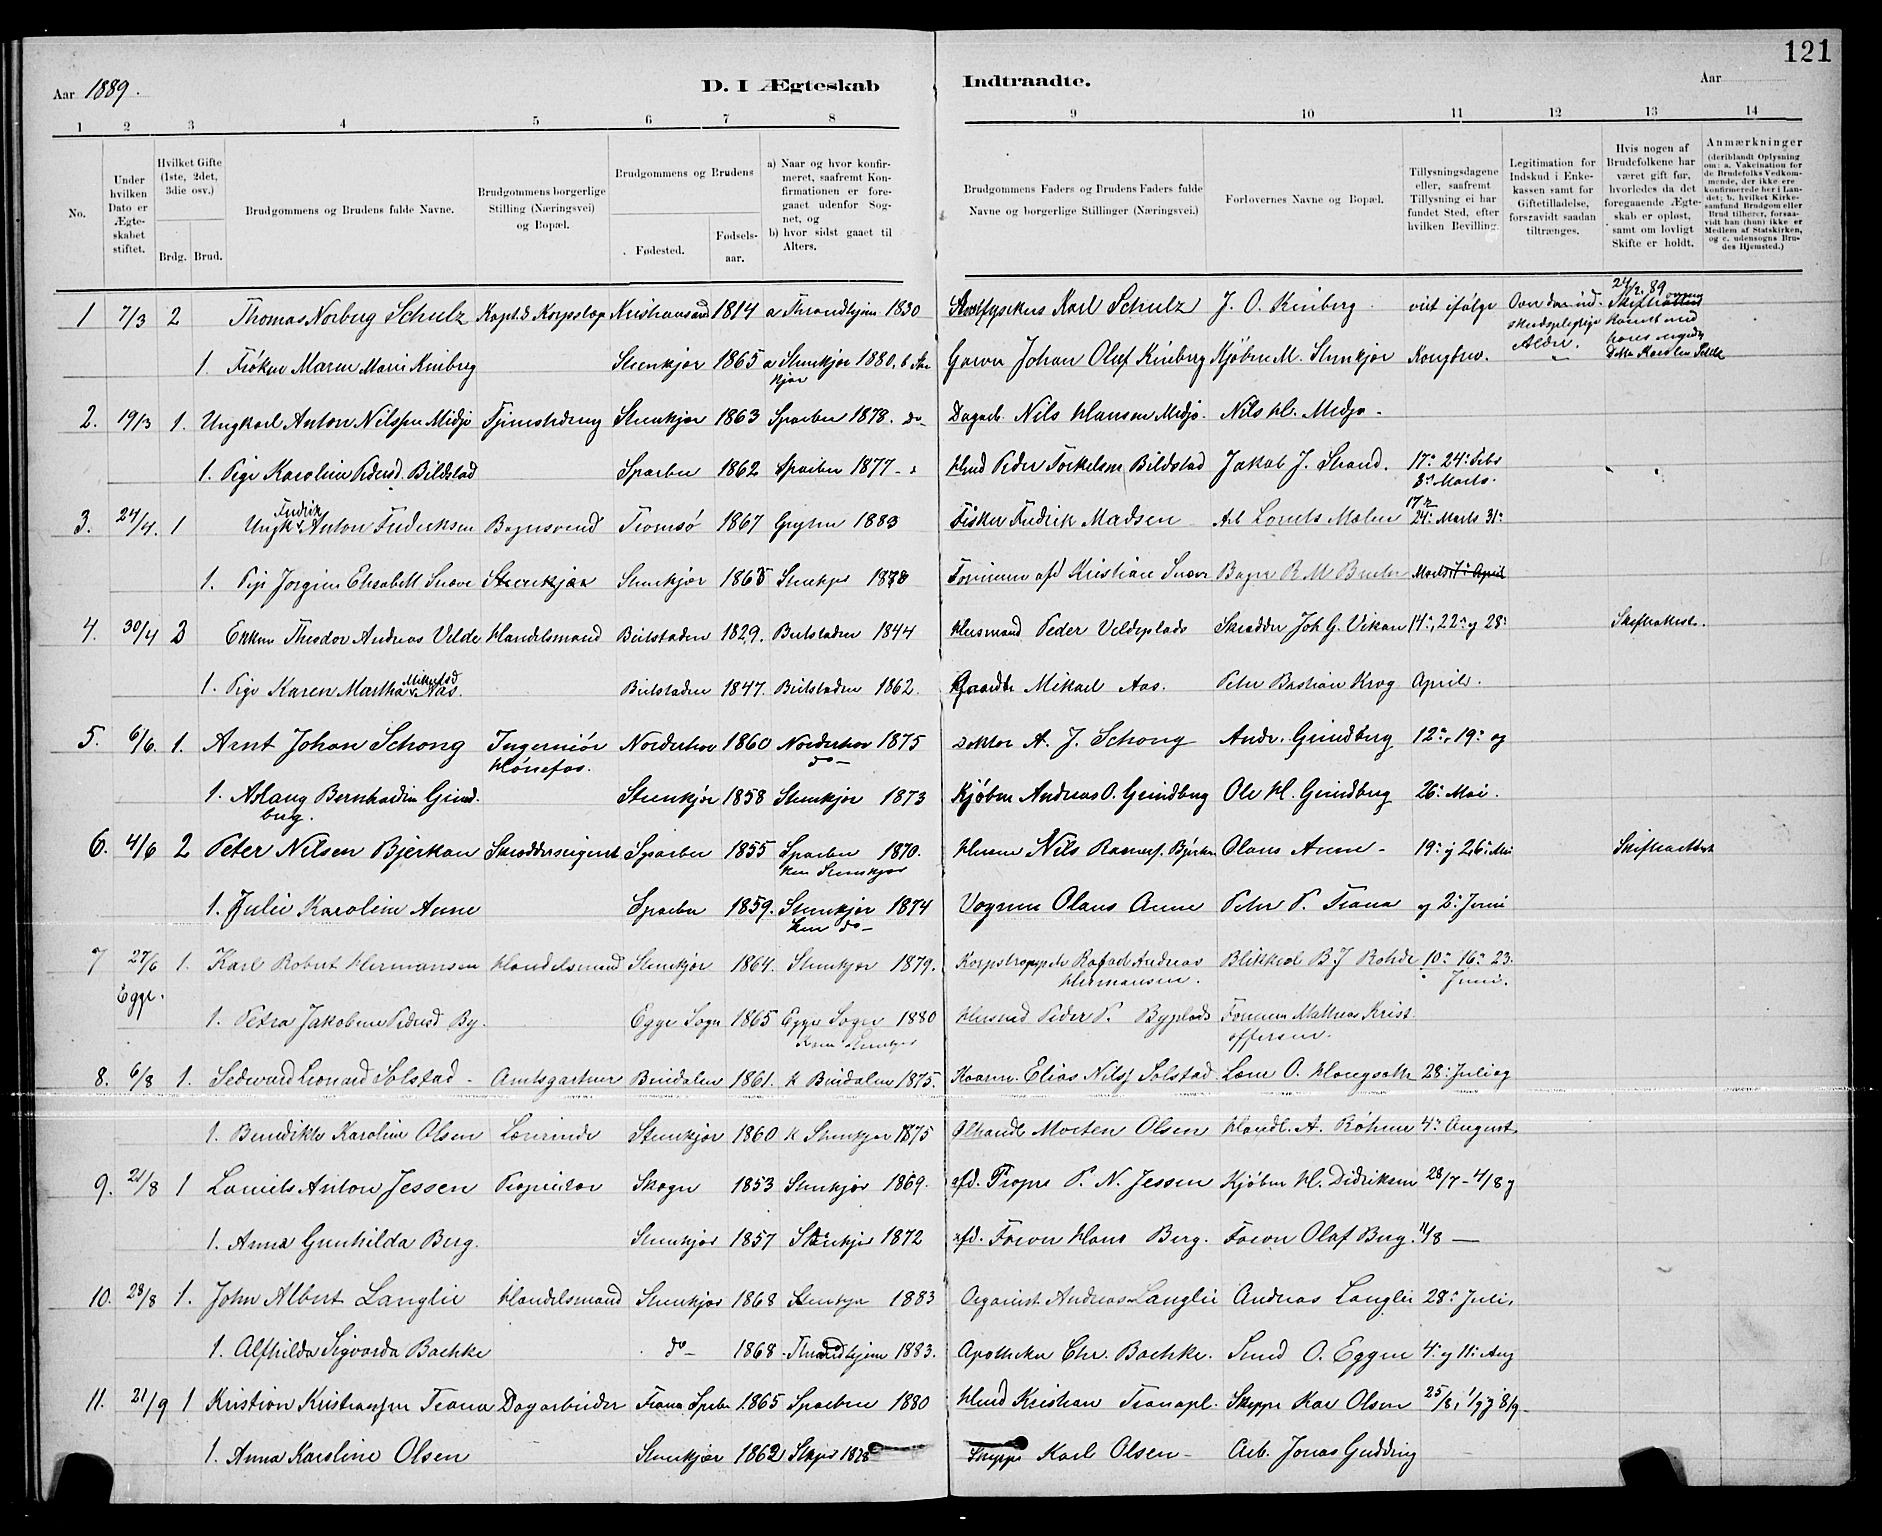 121
Aar 1889.
D. I Ægteskab Indtraadte.
Aar
1 2 3 4 5 6 7 8 9 10 11 12 13 14
No.
Under hvilken Dato er Ægteskabet stiftet.
Hvilket Gifte (1ste, 2det, 3die osv.)
Brdg. Brud.
Brudgommens og Brudens fulde Navne.
Brudgommens borgerlige Stilling (Næringsvei) og Bopæl.
Brudgommens og Brudens
Fødested. Fødselsaar.
a) Naar og hvor konfirmeret, saafremt Konfirmationen er foregaaet udenfor Sognet, og
b) hvor sidst gaaet til Alters.
Brudgommens Faders og Brudens Faders fulde Navne og borgerlige Stillinger (Næringsvei.)
Forlovernes Navne og Bopæl.
Tillysningsdagene eller, saafremt Tillysning ei har fundet Sted, efter hvilken Bevilling.
Legitimation for Indskud i Enkekassen samt for Giftetilladelse, forsaavidt saadan tiltrænges.
Hvis nogen af Brudefolkene har været gift før, hvorledes da det foregaaende Ægteskab er opløst, samt om lovligt Skifte er holdt.
Anmærkninger (deriblandt Oplysning om: a. Vakcination for de Brudefolks Vedkommende, der ikke ere konfirmerede her i Landet; b. hvilket Kirkesamfund Brudgom eller Brud tilhører, forsaavidt han (hun) ikke er Medlem af Statskirken, og c. udensogns Brudes Hjemsted.)
1 7/3 2 Thomas Norberg Schulz Kapt. d. Korpslæge Kristiansand 1814 a Throndhjem 1830 Karl Schulz J. O. Kinberg viet ifølge 24/2 89
1. Frøken Maren Marie Kinberg Stenkjær 1865 a Stenkjær 1880. b Stenkjær Garver Johan Oluf Kinberg Kjøbm M. Stenkjær Kongebrev.
2. 19/3 1. Ungkarl Anton Nilssen Midjo Stenkjær 1863 Sparbu 1878. do Dagarb. Nils Hansen Midjo. Nils H. Midjo
1. Pige Karoline Pedersd. Bildstad Sparbu 1862 Sparbu 1877 Husmd Peder Torkelsen Bildstad Jakob J. Strand. 17. 24. Febr 3. Marts.
3. 24/4. 1 Ungk. Fredrik Anton Frederiksen Bagersvend Tromsø 1867 Grytten 1883 Fisker Fredrik Madsen Arb Lorents Malm 17. 24. Marts 31.
1. Pige Jørgine Elisabeth Snæve Stenkjær Stenkjær 1865 Stenkjær 1888 Formann afd Kristian Snæve Bager R M Marts April
4. 30/4 2 Enkem Theodor Andreas Velde Handelsmand Beitstaden 1829. Beitstaden 1844 Husmand Peder Veldeplads Skrædder Joh G. Vikan 14., 22. og 28. Skifteattest.
1. Pige Karen Martha Mikelsd Aas. Beitstaden 1847. Beitstaden 1862. Gaardbr Mikael Aas. Peter Bastian Krog April.
5. 6/6. 1. Arnt Johan Schong Ingeniør Hønefos. Norderhov 1860 Norderhov 1875 do Doktor A. J. Schong Andr. Grindberg 12., 19. og
1. Aslaug Bernhardine Grindberg. Stenkjær 1858 Stenkjær 1873 Kjøbm Andreas O. Grindberg Ole H. Grindberg 26. Mai.
6. 4/6 2 Peter Nilsen Bjerkan Skræddersvend Sparbu 1855 Sparbu 1870. Stenkjær Husm Nils Bjerkan Olaus Anme 19. og 26. Mai Skifteattest
1. Julie Karoline Anme Sparbu 1859. Stenkjær 1874 do Vognm Olaus Anme Peter P. Trana og 2. Juni
7 27/6 Egge. 1. Karl Robert Hermansen Handelsmand Stenkjær 1864. Stenkjær 1879. Rafael Andreas Hermansen. B J Rohde 10. 16. 23. Juni.
1. Petra Jakobine Pedersd By. Egge Sogn 1865 Egge Sogn 1880 Stenkjær Husmd Peder P. Byplads Formann Mathias Kristoffersen.
8. 6/8 1. Sedward Leonard Solstad Amtsgartner Bindalen 1861. k Bindalen 1875. Elias Nilss Solstad Lærer O. 28. Juli og
1. Benedikte Karoline Olsen Lærerinde Stenkjær 1860 k Stenkjær 1875 Morten Olsen Handl. A. Røhme 4. August
9. 21/8 1 Laurits Anton Jessen Proprietær Skogn 1853 Stenkjær 1869. afd. Propr P. N. Jessen Kjøbm H. Didriksen 28/7 - 4/8 og
1. Anna Gunhilda Berg. Stenkjær 1857 Stenkjær 1872 afd. Farver Hans Berg. Farver Olaf Berg. 11/8
10. 28/8 1. John Albert Langlie Handelsmand Stenkjær 1868 Stenkjær 1883 Organist Andreas Langlie Andreas Langlie 28. Juli,
1. Alfhilda Sigvarda Bachke do 1868 Throndhjem 1883. Apotheker Chr. Bachke. Smed O. Eggen 4. og 11. Aug
11. 21/9 1 Kristian Kristiansen Trana Dagarbeider Trana Sparbu 1865 Sparbu 1880 Husmd Kristian Tranapl. Skipper Karl Olsen 25/8, 1/9 og 8/9
1. Anna Karoline Olsen Stenkjær 1862 Stkjær 1878 Skipper Karl Olsen Arb. Jonas Gudding